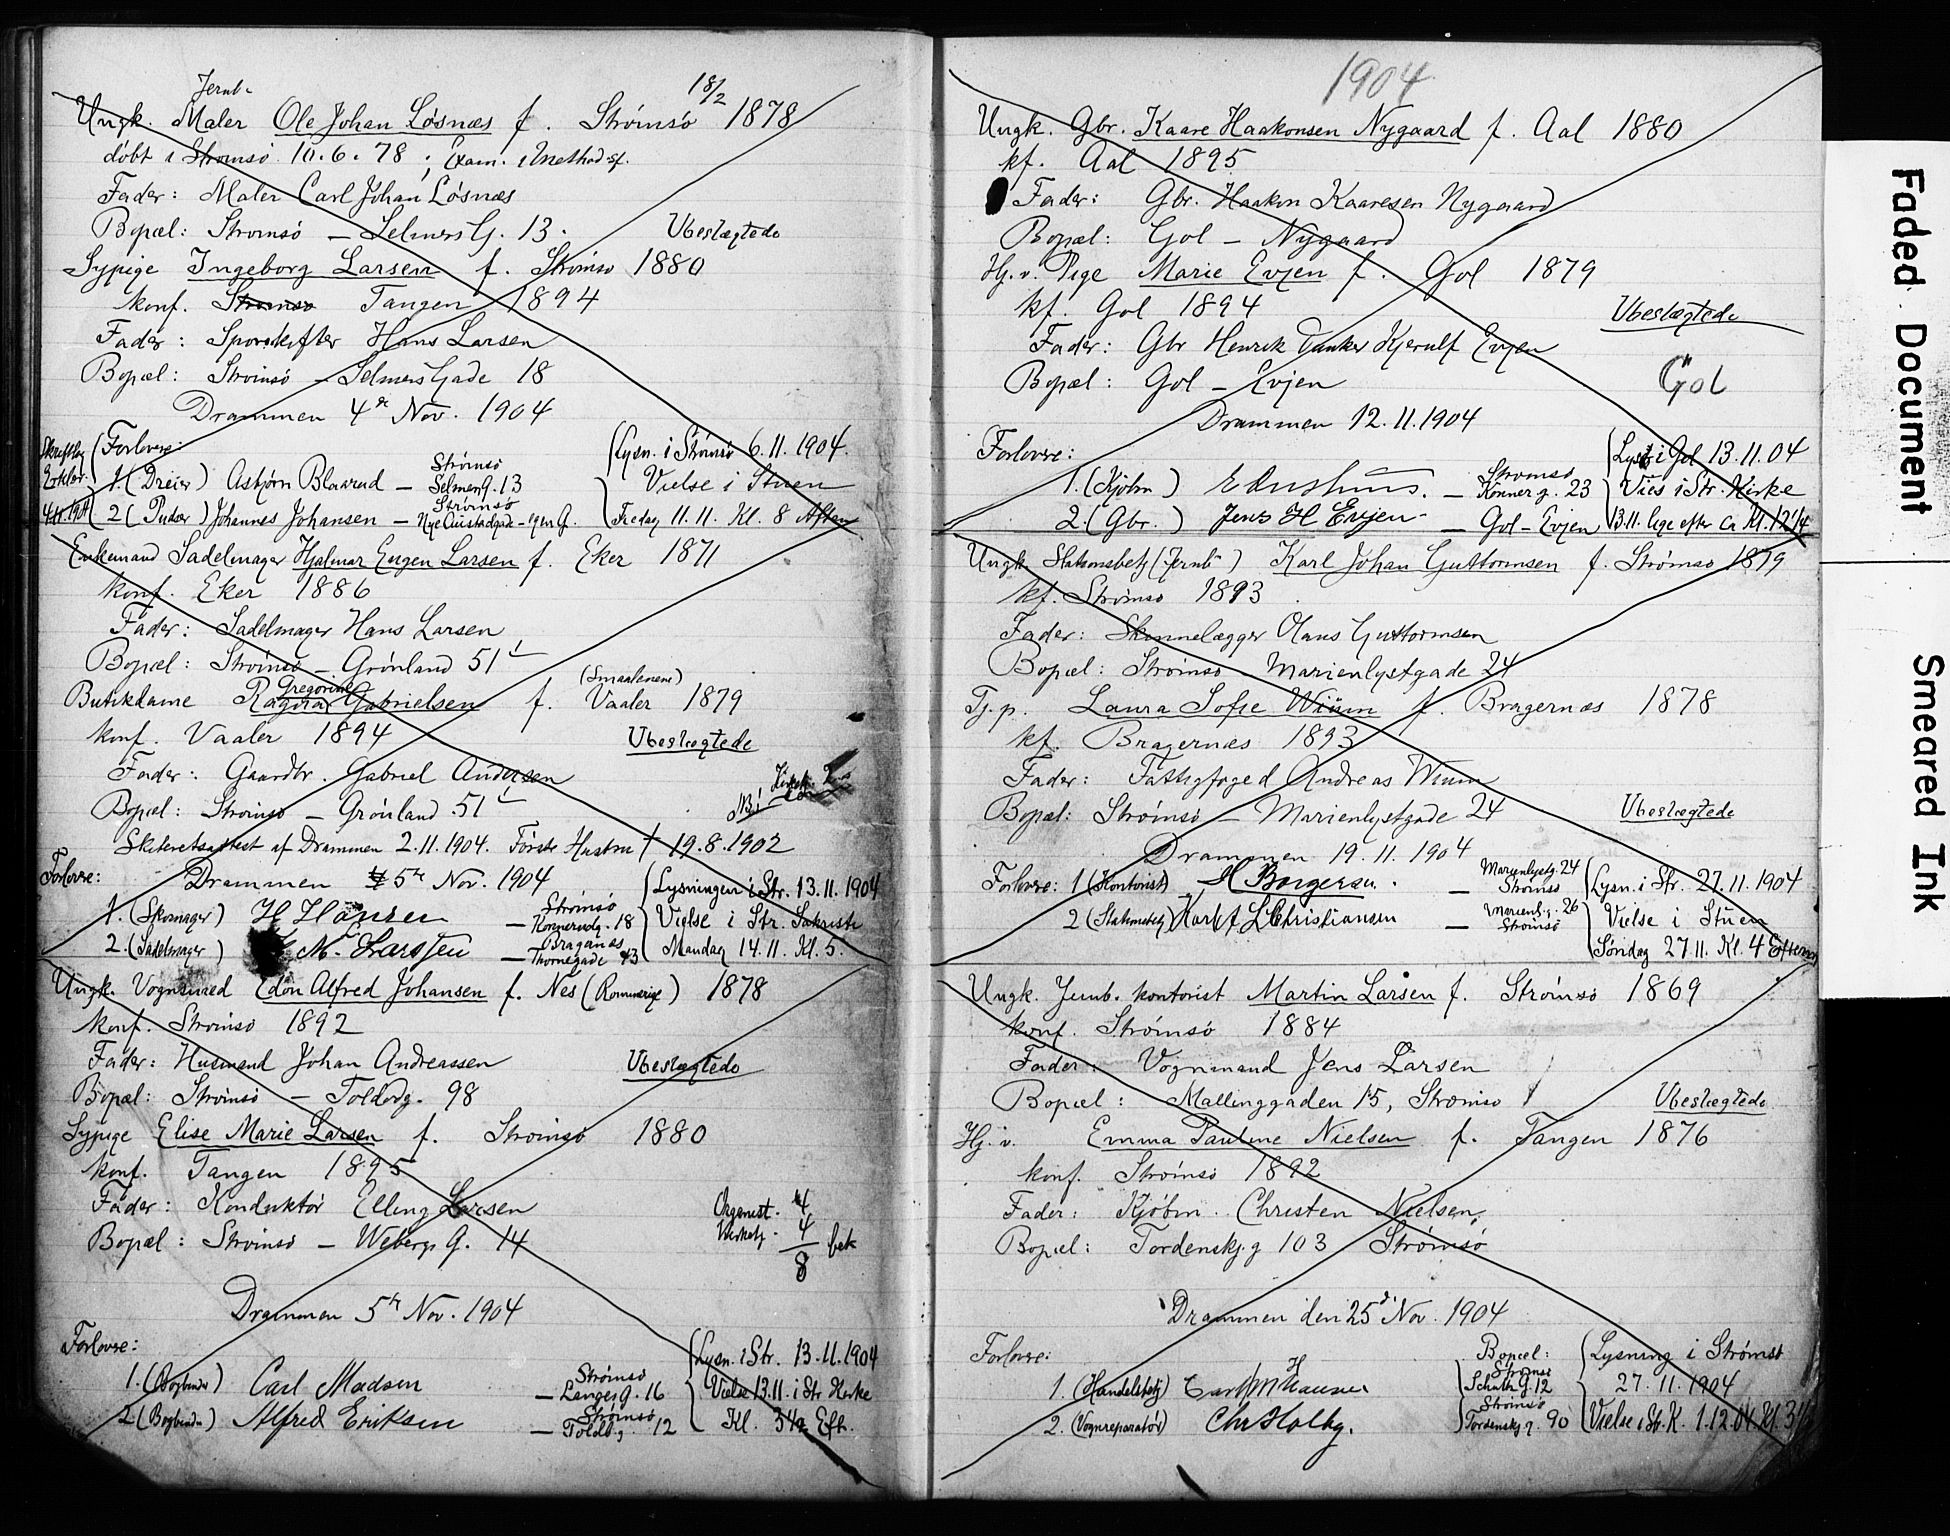 Jernb. 18/2
Ungk. Maler Ole Johan Løsnæs f. Strømsø 1878
døbt i Strømsø 10.6.78; Exam. i Methodsf.
Fader: Maler Carl Johan Løsnæs
Bopæl: Strømsø — Selmers G. 13. Ubeslægtede
Sypige Ingeborg Larsen f. Strømsø 1880
konf. Strømsø Tangen 1894
Fader: Sporskifter Hans Larsen
Bopæl: Strømsø — Selmers Gade 18
Drammen 4de Nov. 1904
Forlovere:
1. (Dreier) Asbjørn Blaarud — Strømsø Selmerg. 13
2 (Pudser) Johannes Johansen — Strømsø
Lysn. i Strømsø 6.11.1904.
Vielse i Stuen
Fredag 11.11. Kl. 8 Aften
Enkemand Sadelmager Hjalmar Eugen Larsen f. Eker 1871
konf. Eker 1886
Fader: Sadelmager Hans Larsen
Bopæl: Strømsø — Grønland 51
Butikdame Ragna Gregorine Gabrielsen f. Vaaler (Smaalenene) 1879
konf. Vaaler 1894 Ubeslægtede
Fader: Gaardbr. Gabriel Andersen
Bopæl: Strømsø — Grønland 51
Skifteretsattest af Drammen 2.11.1904. Første Hustru † 19.8.1902
Forlovere: Drammen 5te Nov. 1904
1. (Skomager) H Hansen — Strømsø Konnerudg. 18
2. (Sadelmager) M. Larssen — Bragernæs Thornegade 43
Lysningen i Str. 13.11.1904
Vielse i Str. Sakristi
Mandag 14.11. Kl. 5.
Ungk. Vognmand Edon Alfred Johansen f. Nes (Romerige) 1878
konf. Strømsø 1892
Fader: Husmand Johan Andreassen Ubeslægtede
Bopæl: Strømsø — Toldbdg. 98
Sypige Elise Marie Larsen f. Strømsø 1880
konf. Tangen 1895
Fader: Konduktør Elling Larsen
Bopæl: Strømsø — Webergs G. 14
Organist. 4
Kirketj. 4
8 bet
Drammen 5te Nov. 1904
Forlovere:
1. (Bogbinder) Carl Madsen — Strømsø Langesg. 16
2 (Bogbinder) Alfred Eriksen — Strømsø Toldbg. 12
Lysn. i Str. 13.11.1904
Vielse 13.11. i Str Kirke
Kl. 3½ Eft.
1904
Ungk. Gbr. Kaare Haakonsen Nygaard f. Aal 1880
kf. Aal 1895
Fader: Gbr. Haakon Kaaresen Nygaard
Bopæl: Gol — Nygaard
Hj. v. Pige Marie Evjen f. Gol 1879
kf. Gol 1894 Ubeslægtede
Fader: Gbr Henrik Danker Kjerulf Evjen
Bopæl: Gol — Evjen Gol
Drammen 12.11.1904
Forlovere:
1. (Kjøbm) — Strømsø Konnerg. 23
2. (Gbr.) Jens H Evjen — Gol — Evjen
Lyst i Gol 13.11.04
Vies i Str. Kirke
13.11. lige efter Ca Kl. 12¼
Ungk. Stationsbetj (Jernb) Karl Johan Guttormsen f. Strømsø 1879
kf. Strømsø 1893
Fader: Skinnelægger Olaus Guttormsen
Bopæl: Strømsø Marienlystgade 24
Tj.p. Laura Sofie Wium f. Bragernæs 1878
kf. Bragernæs 1893
Fader: Fattigfoged Andreas Wium
Bopæl: Strømsø — Marienlystgade 24 Ubeslægtede
Drammen 19.11.1904
Forlovere: 1 (Kontorist) H Borgersen — Marienlystg. 24 Strømsø
2 (Stationsbetj) Karl J. L. Christiansen — Marienl.g. 26 Strømsø
Lysn. i Str. 27.11.1904
Vielse i Stuen
Søndag 27.11. Kl. 4 Efterm
Ungk. Jernb. kontorist Martin Larsen f. Strømsø 1869
konf. Strømsø 1884
Fader: Vognmand Jens Larsen
Bopæl: Mallinggaden 15, Strømsø Ubeslægtede
Hj. v. Emma Pauline Nielsen f. Tangen 1876
konf. Strømsø 1892
Fader: Kjøbm. Christen Nielsen
Bopæl: Tordenskj.g 103 Strømsø
Drammen den 25de Nov. 1904
Forlovere: Bopæl:
1. (Handelsbetj) Strømsø G. 12
2. (Vognreparatør) Chr Holby. Strømsø Tordenskj.g. 90
Lysning i Strømsø
27.11.1904
Vielse i St. K. 1.12.04. Kl. 3½
Faded Document
Smeared Ink